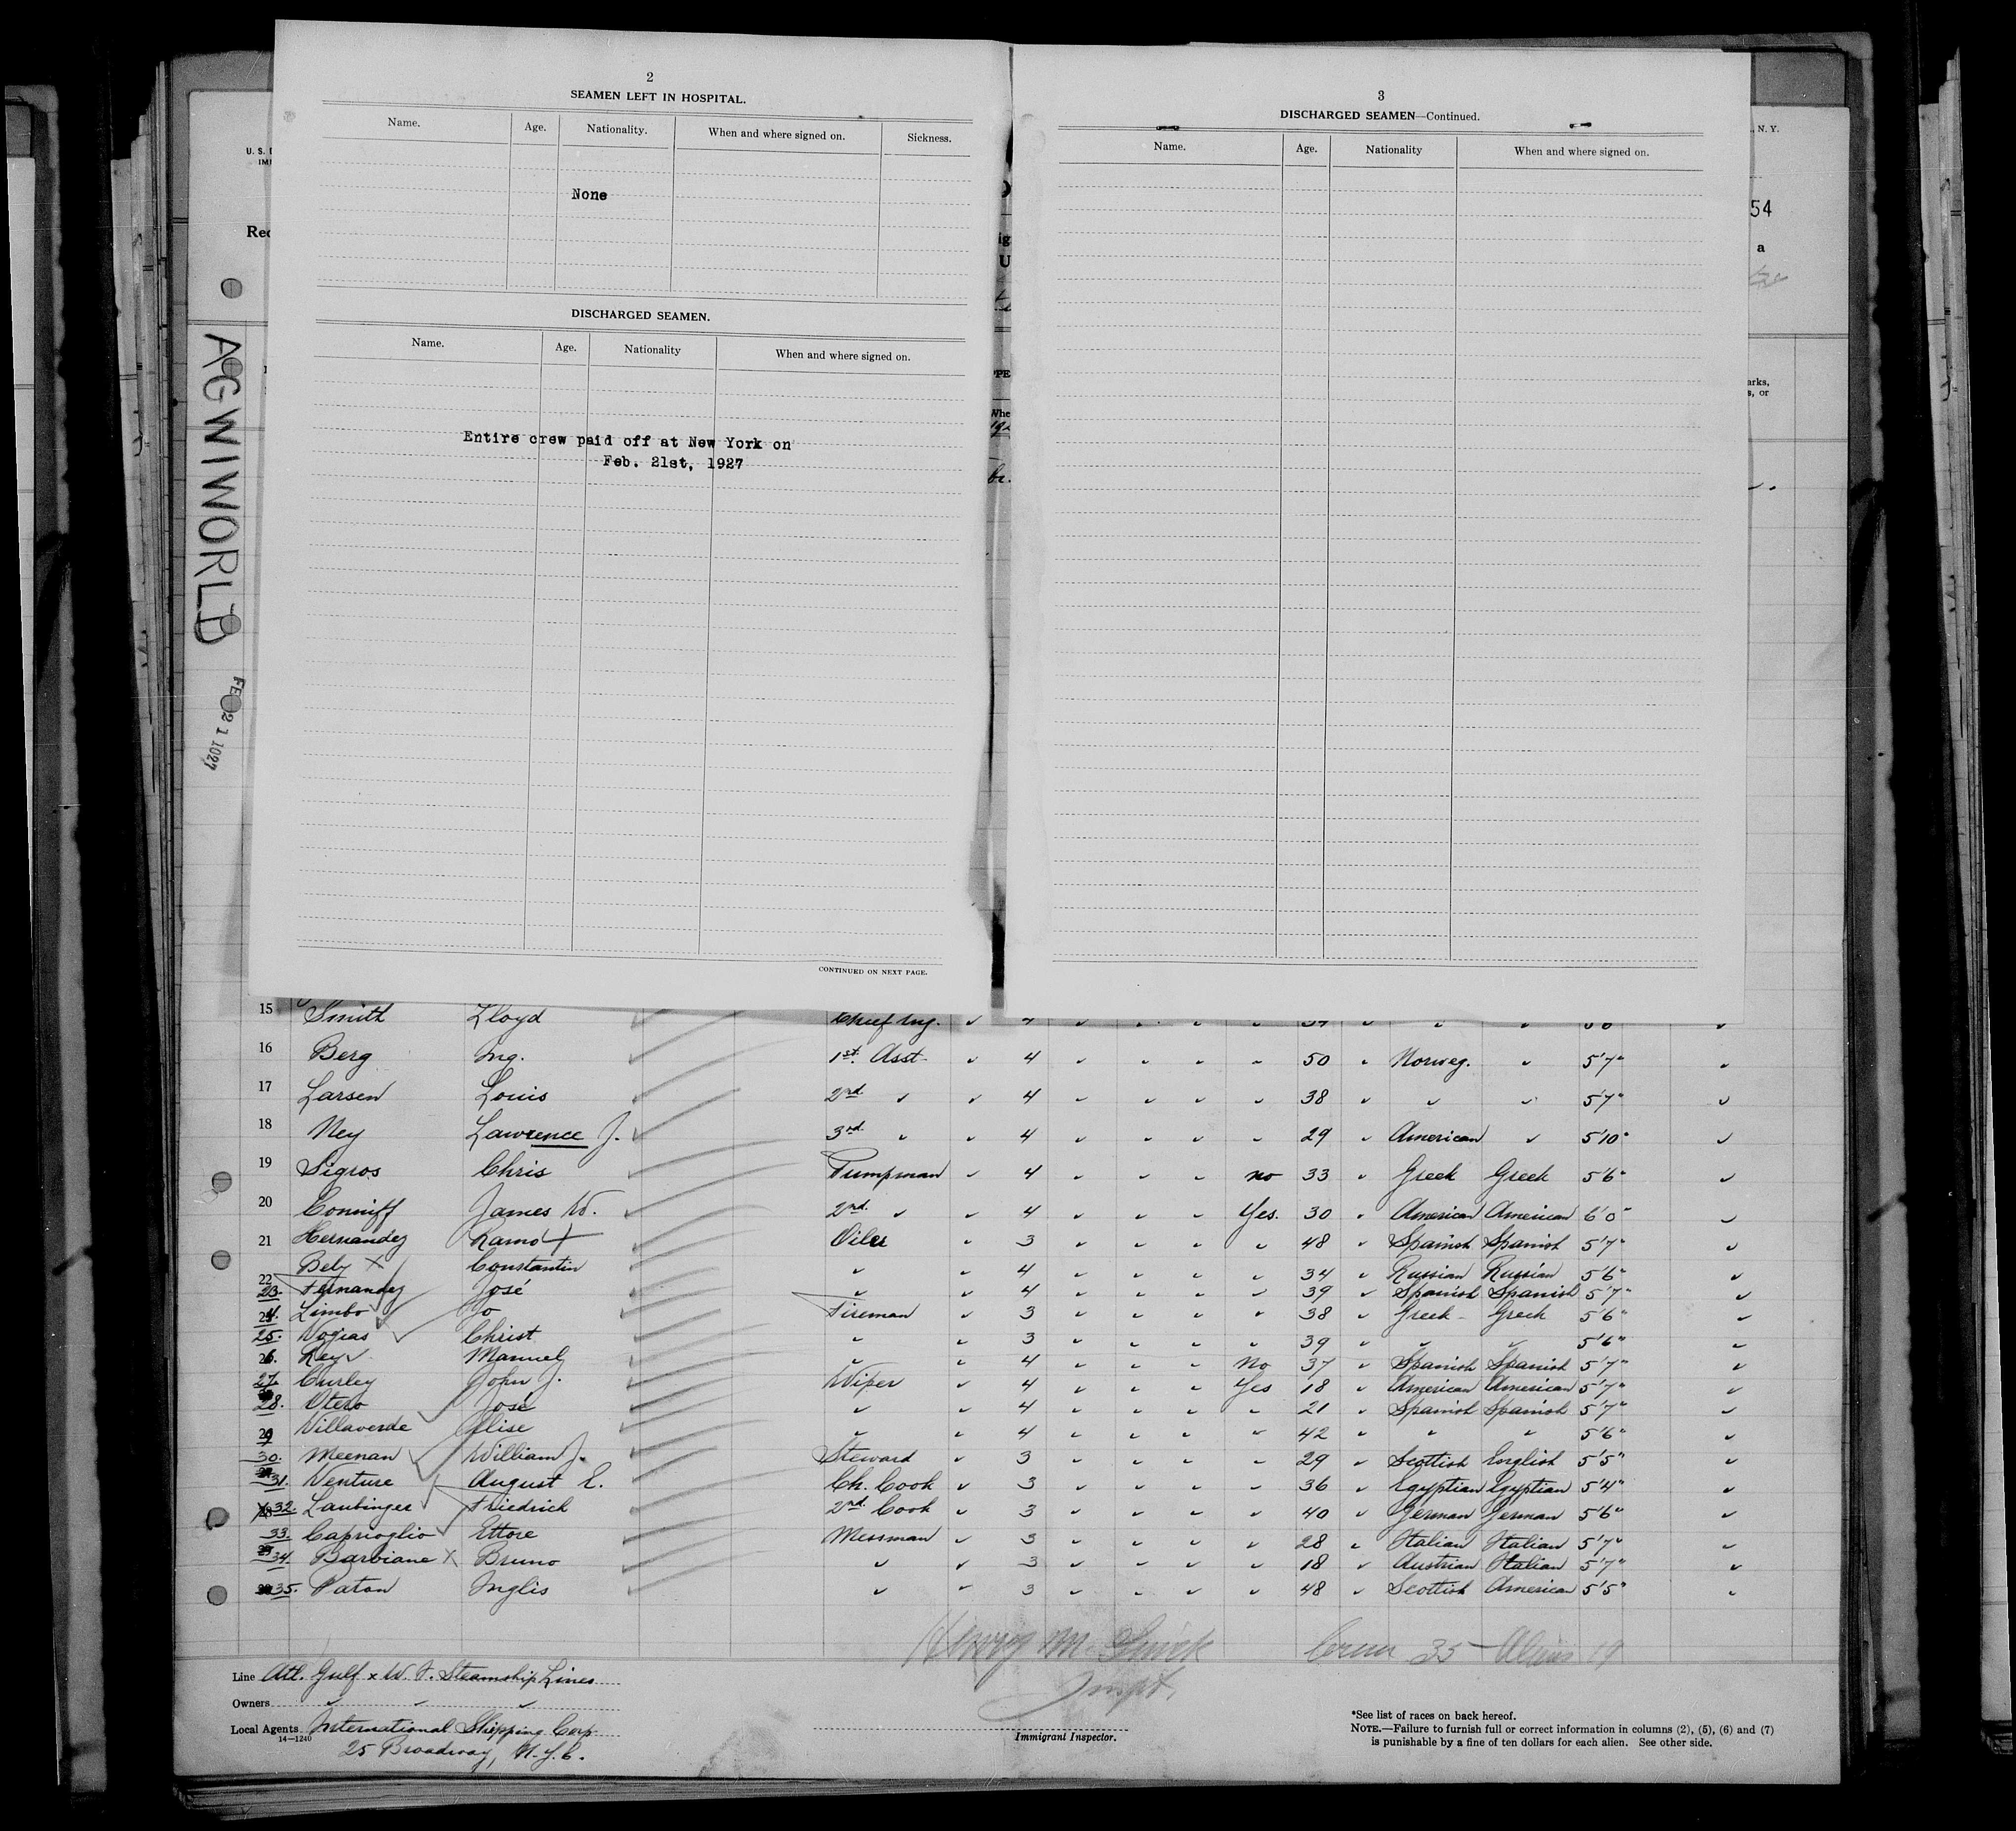 2
SEAMEN LEFT IN HOSPITAL.
Name. Age. Nationality. When and where signed on. Sickness.
None
DISCHARGED SEAMEN.
Name. Age. Nationality When and where signed on.
Entire crew paid off at New York on
Feb. 21st, 1927
CONTINUED ON NEXT PAGE.
3
DISCHARGED SEAMEN—Continued.
Name. Age. Nationality When and where signed on.
U. S.
, N. Y.
54
a
arks,
s, or
AGWINWORLD
15 Smith Lloyd Chief Eng. ✓ 4 ✓ ✓ ✓ ✓
16 Berg Ing. 1st. Asst ✓ 4 ✓ ✓ ✓ ✓ 50 ✓ Norweg. ✓ 5'7" ✓
17 Larsen Louis 2nd ✓ ✓ 4 ✓ ✓ ✓ ✓ 38 ✓ ✓ ✓ 5'7" ✓
18 Ney Lawrence J. 3rd. ✓ ✓ 4 ✓ ✓ ✓ ✓ 29 ✓ American ✓ 5'10" ✓
19 Sigros Chris Pumpman ✓ 4 ✓ ✓ ✓ no 33 ✓ Greek Greek 5'6" ✓
20 Conniff James W. 2nd. ✓ ✓ 4 ✓ ✓ ✓ Yes. 30 ✓ American American 6'0" ✓
21 Hernandez Ramo Oiler ✓ 3 ✓ ✓ ✓ ✓ 48 ✓ Spanish Spanish 5'7" ✓
22 Bely X Constantin ✓ ✓ 4 ✓ ✓ ✓ ✓ 34 ✓ Russian Russian 5'6" ✓
23. Fernandez José ✓ ✓ 4 ✓ ✓ ✓ ✓ 39 ✓ Spanish Spanish 5'7" ✓
24. Limbo Jo Fireman ✓ 3 ✓ ✓ ✓ ✓ 38 ✓ Greek Greek 5'6" ✓
25. Vogias Christ ✓ ✓ 3 ✓ ✓ ✓ ✓ 39 ✓ ✓ ✓ 5'6" ✓
26. Rey Manuel ✓ ✓ 4 ✓ ✓ ✓ No 37 ✓ Spanish Spanish 5'7" ✓
27 Curley John J. Wiper ✓ 4 ✓ ✓ ✓ Yes 18 ✓ American American 5'7" ✓
28. Otero José ✓ ✓ 4 ✓ ✓ ✓ ✓ 21 ✓ Spanish Spanish 5'7" ✓
29 Villaverde Elise ✓ ✓ 4 ✓ ✓ ✓ ✓ 42 ✓ ✓ ✓ 5'6" ✓
30. Meenan William J. Steward ✓ 3 ✓ ✓ ✓ ✓ 29 ✓ Scottish English 5'5" ✓
31. Venture August E. Ch. Cook ✓ 3 ✓ ✓ ✓ ✓ 36 ✓ Egyptian Egyptian 5'4" ✓
32. Laubinger Friedrich 2nd. Cook ✓ 3 ✓ ✓ ✓ ✓ 40 ✓ German German 5'6" ✓
33. Caprioglio Ettore Messman ✓ 3 ✓ ✓ ✓ ✓ 28 ✓ Italian Italian 5'7" ✓
34. Barbiane X Bruno ✓ ✓ 3 ✓ ✓ ✓ ✓ 18 ✓ Austrian Italian 5'7" ✓
35. Paton Inglis ✓ ✓ 3 ✓ ✓ ✓ ✓ 48 ✓ Scottish American 5'5" ✓
Crew 35 Aliens 19
Inspt.
Line Atl. Gulf x W. I. Steamship Lines
Owners ✓ ✓ ✓
Local Agents International Shipping Corp
14—1240
25 Broadway, N.Y.C.
Immigrant Inspector.
*See list of races on back hereof.
NOTE.—Failure to furnish full or correct information in columns (2), (5), (6) and (7)
is punishable by a fine of ten dollars for each alien. See other side.